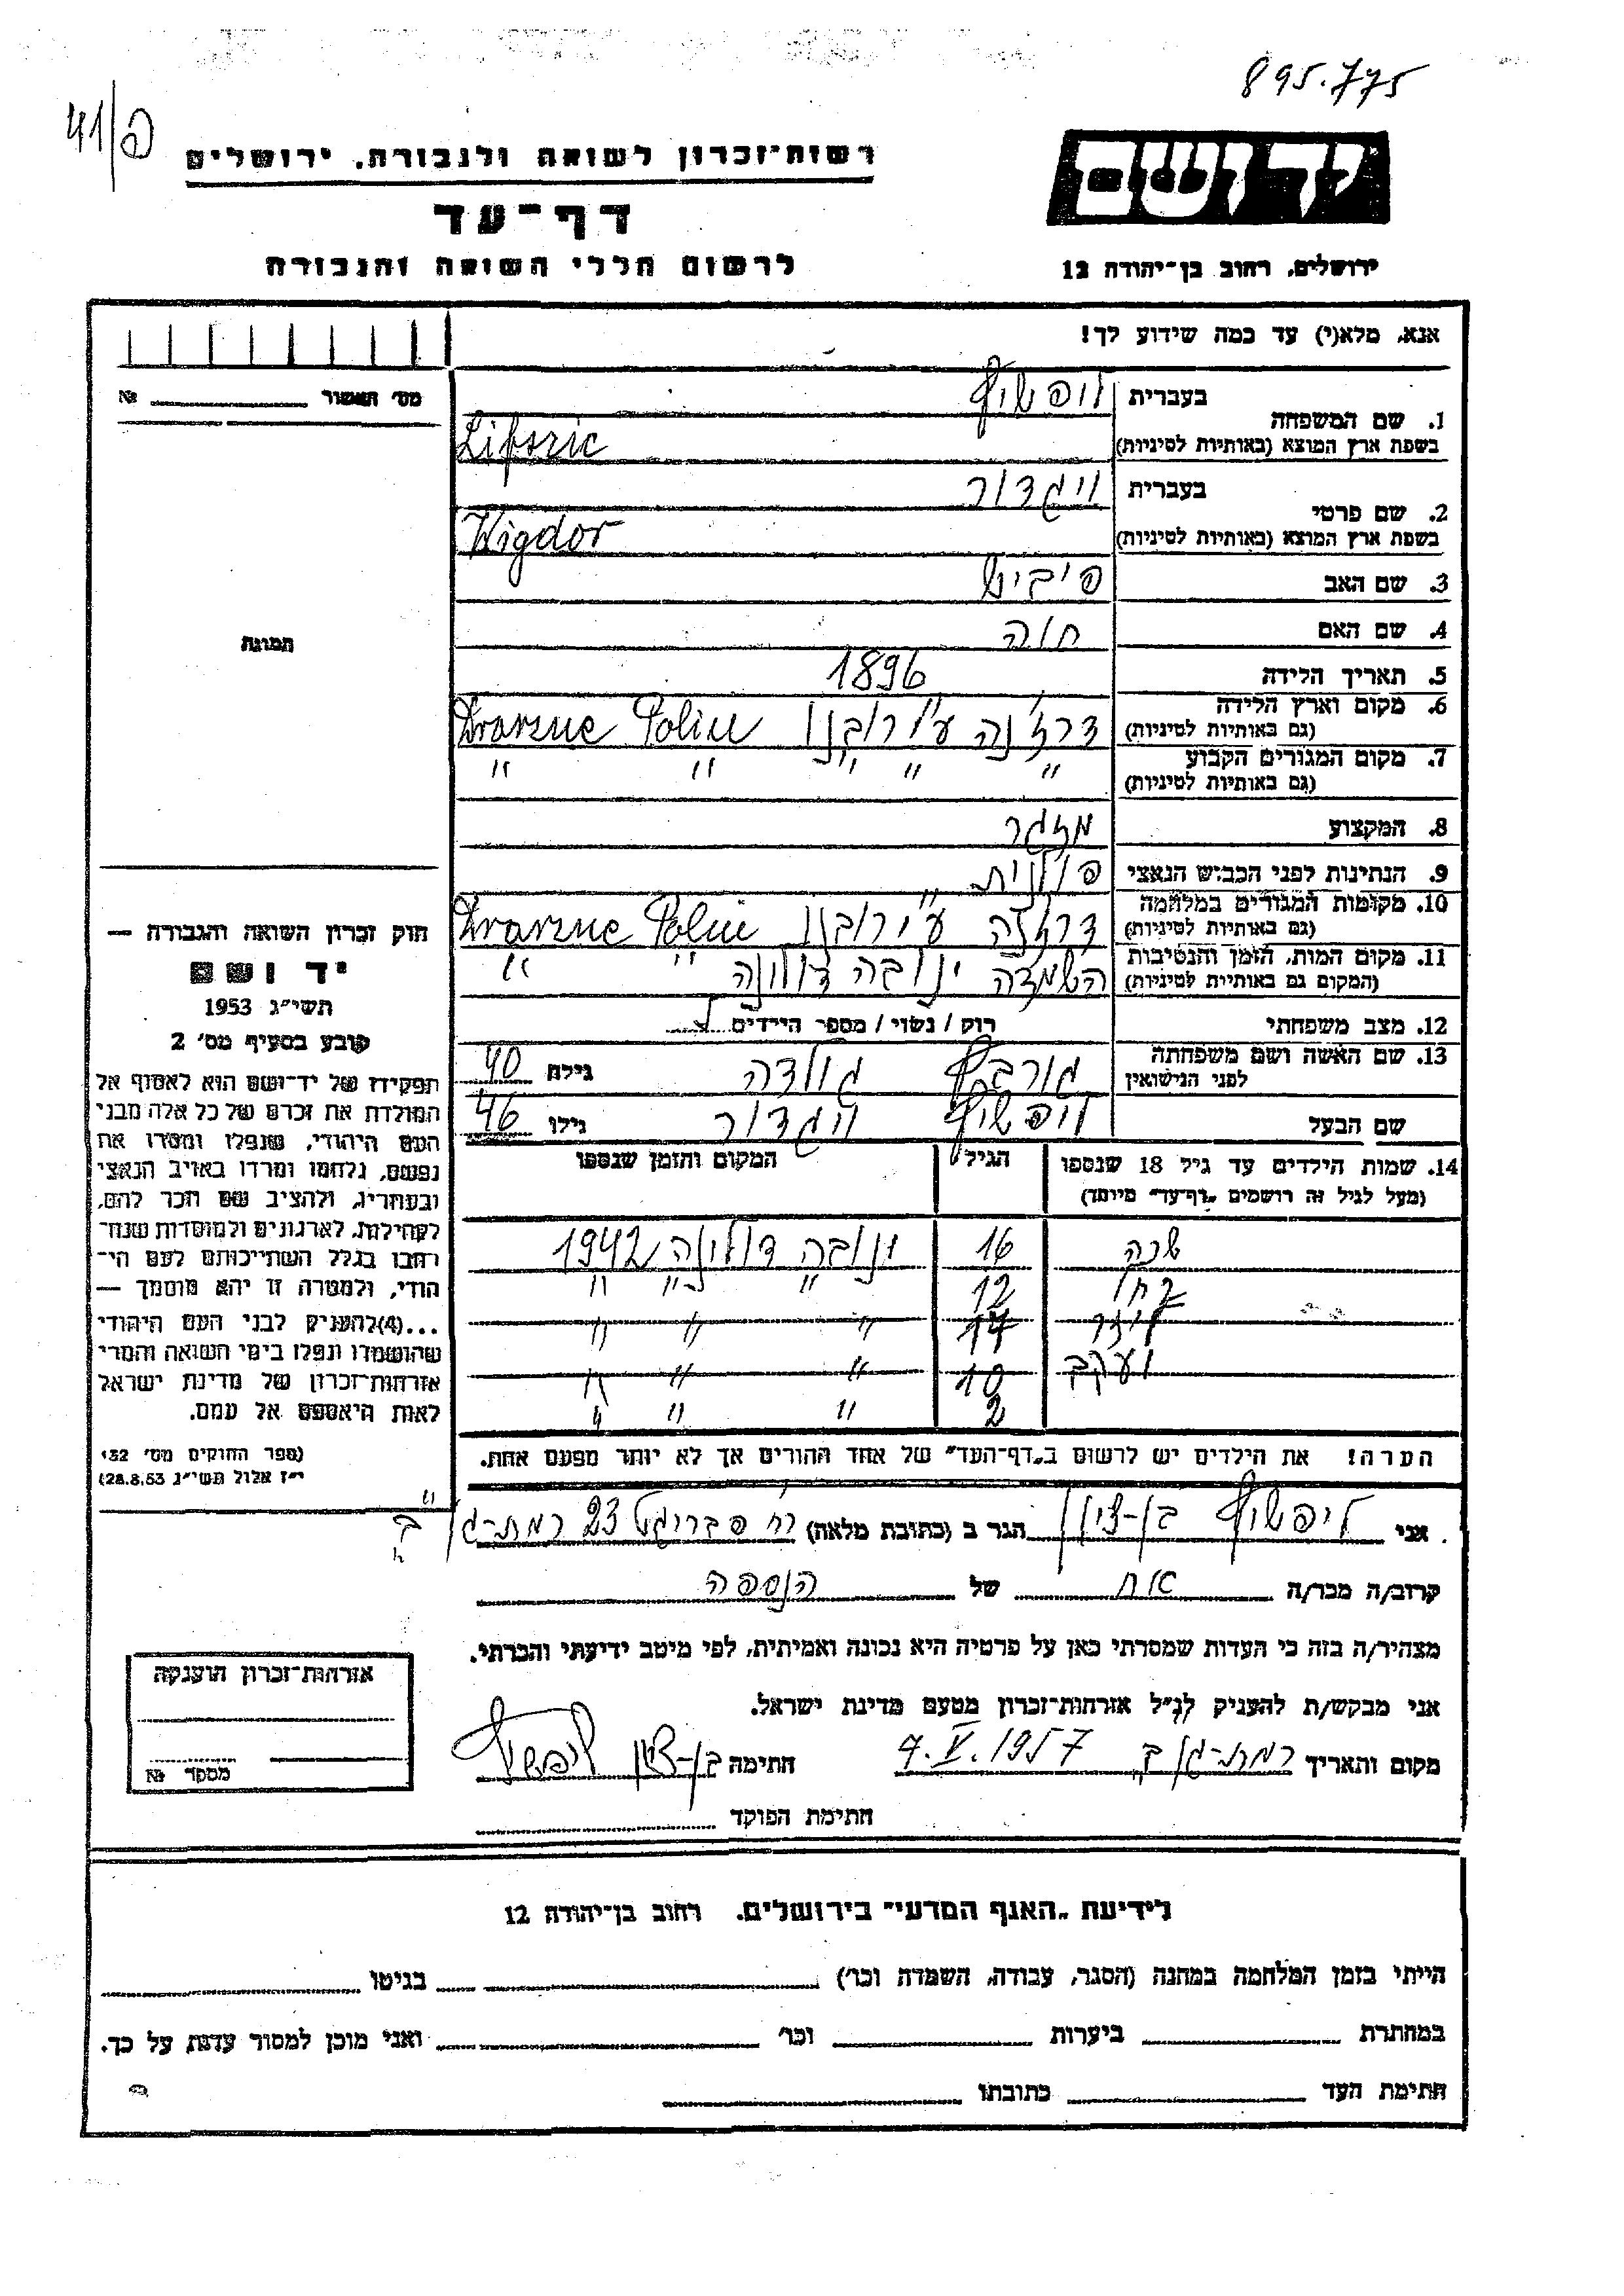 895.775
41/פ
יד ושם
רשות־זכרון לשואה ולגבורה, ירושלים
דף־עד
לרשום חללי השואה והגבורה
ירושלים, רחוב בן־יהודה 12
אנא, מלא(י) עד כמה שידוע לך!
מס׳ האשור №
1. שם המשפחה
בעברית ליפשיץ
בשפת ארץ המוצא (באותיות לטיניות) Lifszic
2. שם פרטי
בעברית ויגדור
בשפת ארץ המוצא (באותיות לטיניות) Wigdor
3. שם האב פייביש
4. שם האם חוה
תמונה
5. תאריך הלידה 1896
6. מקום וארץ הלידה
(גם באותיות לטיניות) דרזנה ע"י רובנו Drazne Polin
7. מקום המגורים הקבוע " " " " "
(גם באותיות לטיניות)
8. המקצוע מזגר
9. הנתינות לפני הכבוש הנאצי פולנית
10. מקומות המגורים במלחמה
(גם באותיות לטיניות) דרזנה ע"י רובנו Drazne Polin
11. מקום המות, הזמן והנסיבות
(המקום גם באותיות לטיניות) השמדה ינובה דולינה " "
12. מצב משפחתי רוק / נשוי / מספר הילדים
13. שם האשה ושם משפחתה
לפני הנישואין גולדה גילה 40
שם הבעל ליפשיץ ויגדור גילו 46
14. שמות הילדים עד גיל 18 שנספו
(מעל לגיל זה רושמים „דף־עד" מיוחד)
הגיל
המקום והזמן שנספו
16 ינובה דולינה 1942
12 " " "
14 " " "
יעקב 10 " " "
2 " " "
הערה! את הילדים יש לרשום ב„דף־העד" של אחד ההורים אך לא יותר מפעם אחת.
חוק זכרון השואה והגבורה —
יד ושם
תשי״ג 1953
קובע בסעיף מס׳ 2
תפקידו של יד־ושם הוא לאסוף אל
המולדת את זכרם של כל אלה מבני
העם היהודי, שנפלו ומסרו את
נפשם, נלחמו ומרדו באויב הנאצי
ובעוזריו, ולהציב שם וזכר להם,
לקהילות, לארגונים ולמוסדות שנח־
רבו בגלל השתייכותם לעם הי־
הודי, ולמטרה זו יהא מוסמך —
...(4) להעניק לבני העם היהודי
שהושמדו ונפלו בימי השואה והמרי
אזרחות־זכרון של מדינת ישראל
לאות היאספם אל עמם.
(ספר החוקים מס׳ 132
י״ז אלול תשי״ג 28.8.53)
אני ליפשיץ בן-ציון הגר ב (כתובת מלאה) רח 23 רמת-גן ב'
קרוב/ה מכר/ה אח של הנספה
מצהיר/ה בזה כי העדות שמסרתי כאן על פרטיה היא נכונה ואמיתית, לפי מיטב ידיעתי והכרתי.
אני מבקש/ת להעניק לנ״ל אזרחות־זכרון מטעם מדינת ישראל.
מקום והתאריך רמת-גן ב' 7.V.1957 חתימה בן-ציון ליפשיץ
חתימת הפוקד
אזרחות־זכרון הוענקה
מספר №
לידיעת „האגף המדעי" בירושלים, רחוב בן־יהודה 12
הייתי בזמן המלחמה במחנה (הסגר, עבודה, השמדה וכו׳) בגיטו
במחתרת ביערות וכו׳ ואני מוכן למסור עדות על כך.
חתימת העד כתובתו